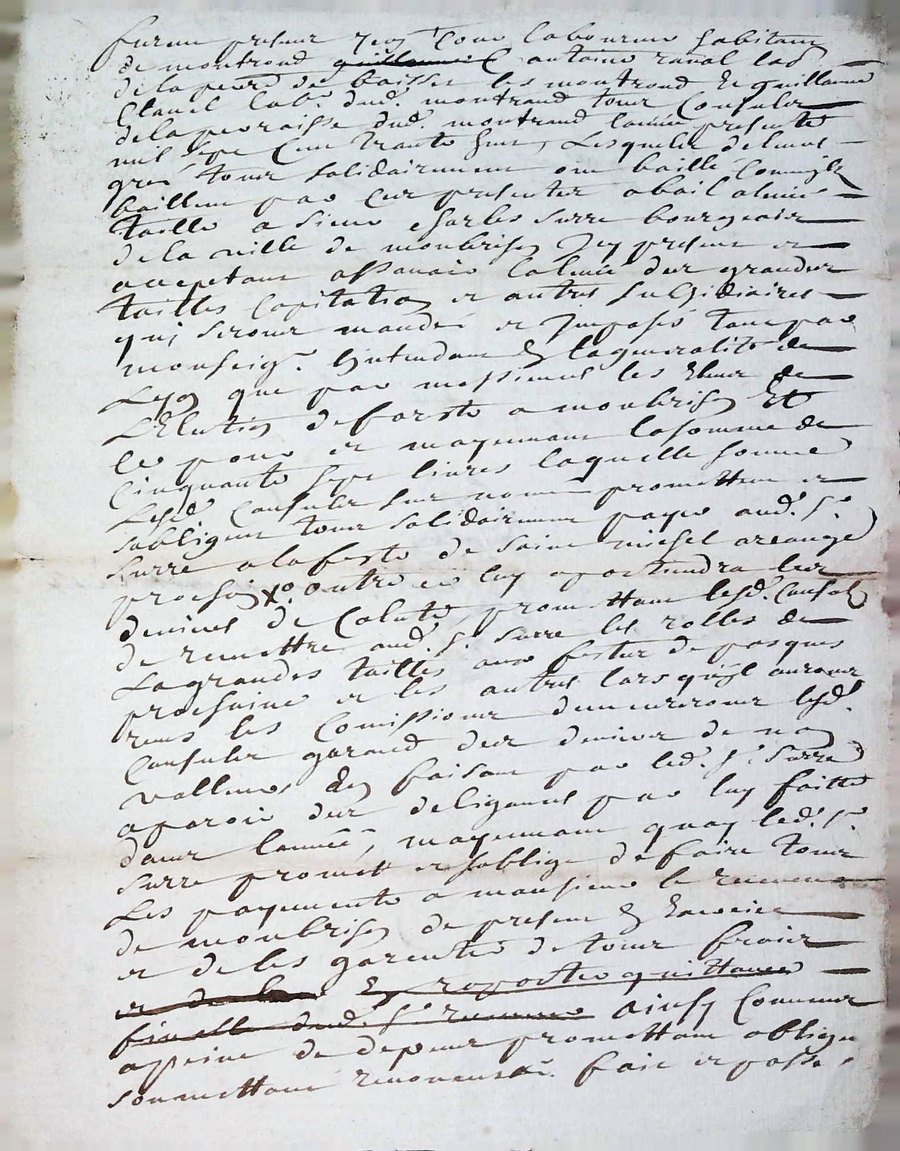 furent presents Jean laboureur habitant
de montrond guillaume C antoine ranal lab
de la peyre de baisse les montrond et guillaume
Clauel lab. dud. montrand tous Consuls
de la perraisse dud. montrand lannée presente
mil sept Cent trante huit, Lesquels de leur
gré tous solidairement ont baillé Comme ils
baillent par Ces presentes a bail a leuée
taille a sieur Charles surre bourgeois
de la ville de monbrison Icy present et
acceptant assauoir la leuée des grandes
tailles Capitation et autres subsidiaires
qui seront mandés et Imposés tant par
monseigr. lintendant En la generalité de
Lyon que par messieurs les Eleus de
LElection de forests a monbrison Et
Ce pour et moyennant la somme de
Cinquante sept liures laquelle somme
Lesd. Consuls sur nom promettent et
sobligent tous solidairement payer aud. sr.
surre a la feste de saint michel arcange
prochain xo. outre ce luy apartiendra les
deniers de Colute, promettant lesd. Consuls
de remettre aud. sr. surre les rolles de
La grandes tailles aux festes de pasques
prochaine et les autres lors quil auront
receus les Comissions demeureront lesd.
Consuls garands des deniers de non
valleurs En faisant par led. sr. surre
aparoir des deligences par luy faitte
dans lannéé, moyennant quoy led. sr.
surre promet et soblige de faire tous
Les payements a monsieur le receueur
de monbrison de present En Exercice
et de les garentir de tous frais
et de leur En raporter quittance
finalle dud. sr. receueur ainsy Conuenus
a peine de depens promettant obligeant
soumettant renoncent. fait et passé